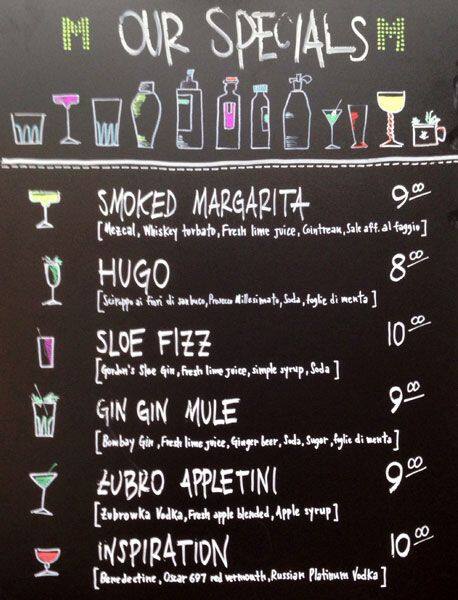 M OUR SPECIALS M
SMOKED MARGARITA 9.00
[Mezcal, Whiskey torbato, Fresh lime juice, Cointreau, Sale aff. al faggio]
HUGO 8.00
[Sciroppo ai fiori di sambuco, Prosecco Millesimato, Soda, foglie di menta]
SLOE FIZZ 10.00
[Gordon's Sloe Gin, Fresh lime juice, simple syrup, Soda]
GIN GIN MULE 9.00
[Bombay Gin, Fresh lime juice, Ginger beer, Soda, Sugar, foglie di menta]
ŻUBRO APPLETINI 9.00
[Żubrowka Vodka, Fresh apple blended, Apple syrup]
INSPIRATION 10.00
[Benedectine, Oscar 697 red vermouth, Russian Platinum Vodka]